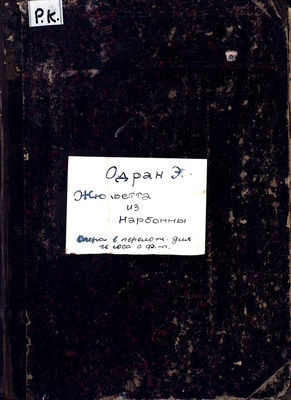 Р.К.
Одран Э.
Жюльетта
из
Нарбонны
Опера в перелож. для
голоса с ф-п.